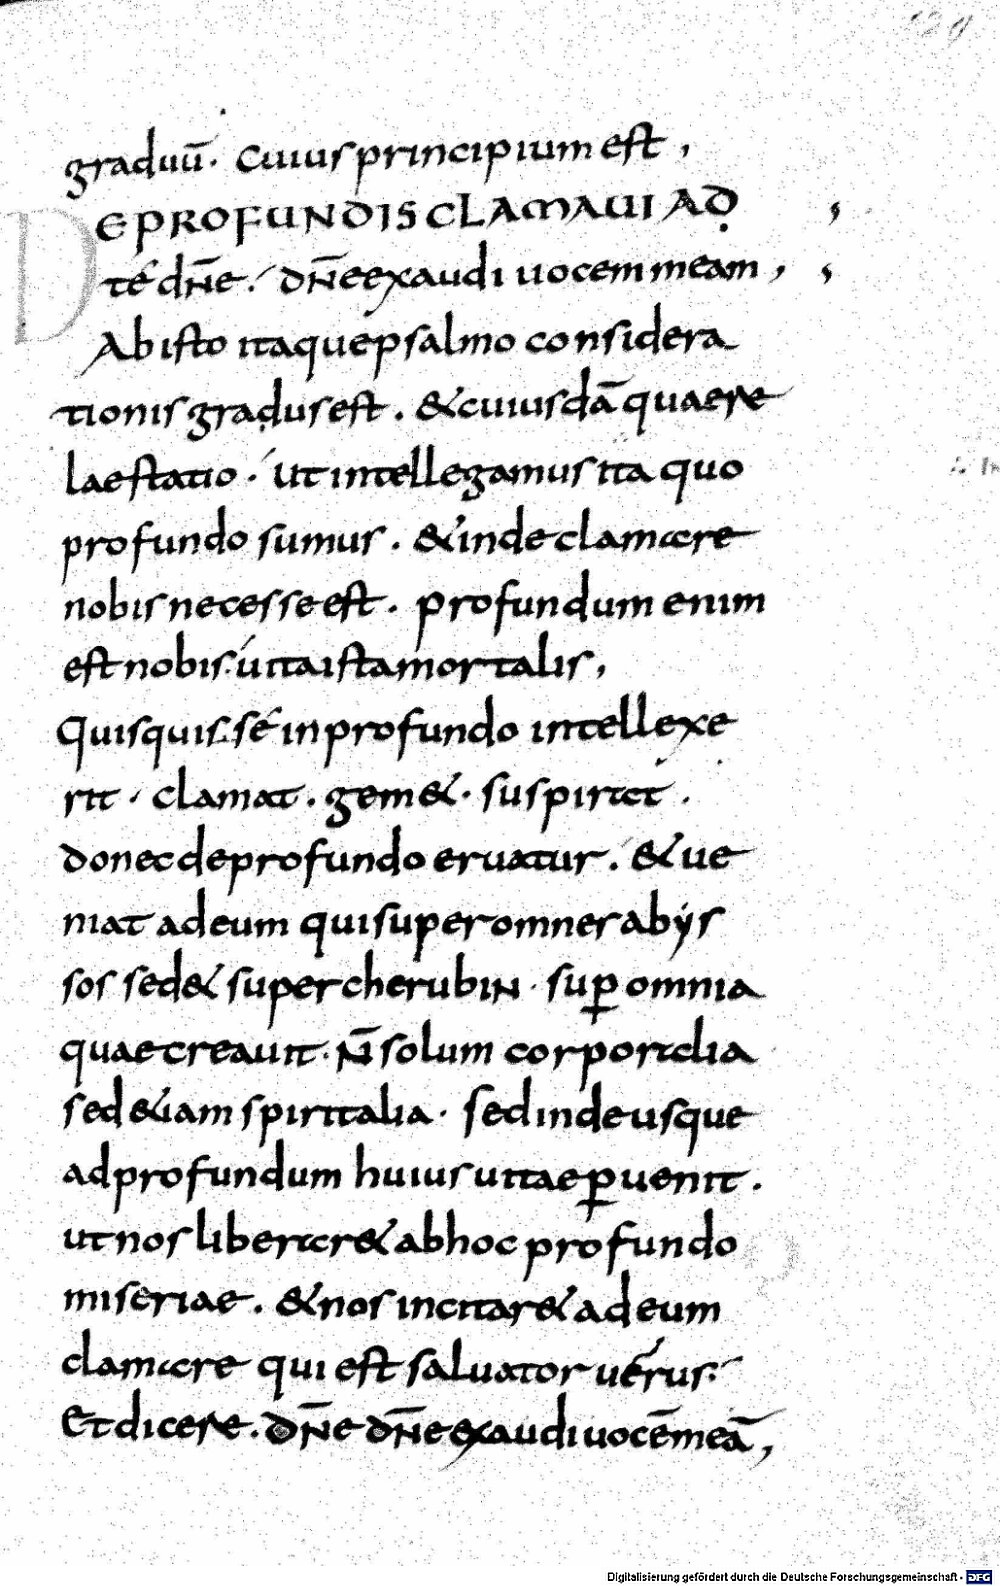 129
graduū. Cuius principium est,
DE PROFUNDIS CLAMAUI AD
té dñe. dñe exaudi uocem meam,
Ab isto itaque psalmo considera
tionis gradus est. & cuiusdā quaere
lae statio. Ut intellegamus ita quo
profundo sumus. & inde clamare
nobis necesse est. profundum enim
est nobis uita ista mortalis,
Quisquis sé in profundo intellexe
rit. clamat. gem&. suspirat.
donec de profundo eruatur. & ue
niat ad eum qui super omnes abys
sos sed& super cherubin. sup̱ omnia
quae creauit. N̄ solum corporalia
sed &iam spiritalia. sed inde usque
ad profundum huius uitae p̱uenit.
ut nos liberar& ab hoc profundo
miseriae. & nos incitar& ad eum
clamare qui est saluator uérus.
Et dicere. dñe dñe exaudi uocē meā,
Digitalisierung gefördert durch die Deutsche Forschungsgemeinschaft - DFG